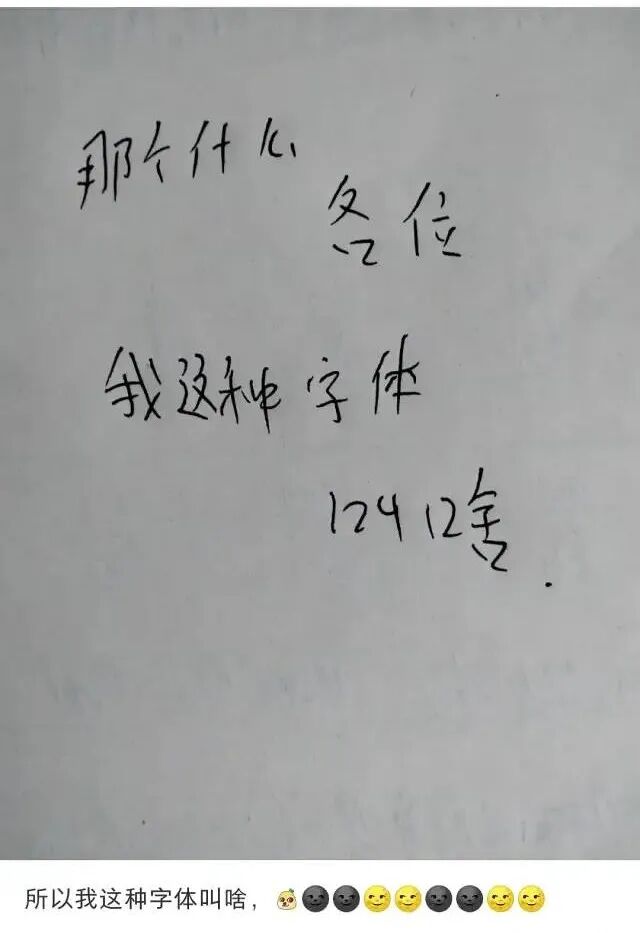 那个什么
各位
我这种字体
叫啥.
所以我这种字体叫啥，